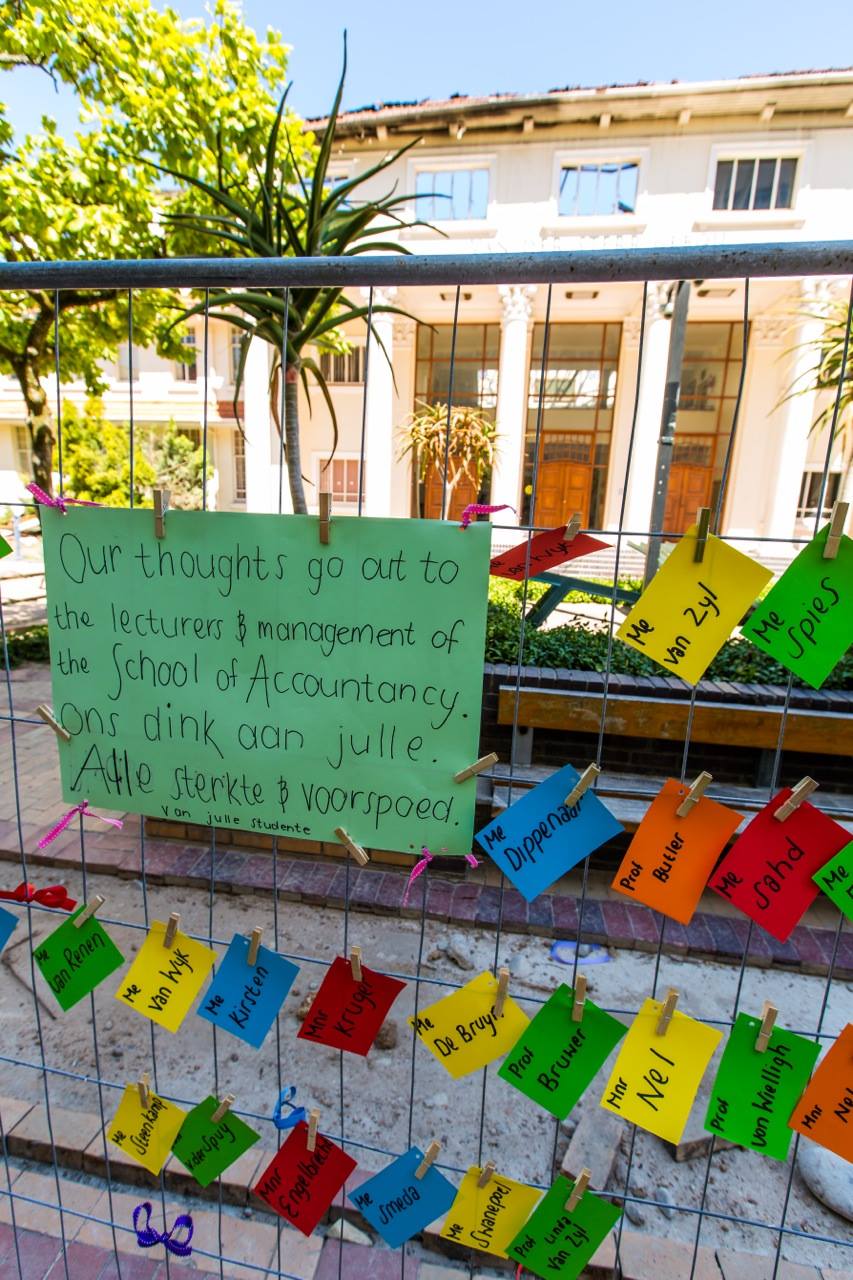 Our thoughts go out to
the lecturers & management of
the School of Accountancy.
ons dink aan julle.
Alle sterkte & voorspoed.
Van julle studente
van Wyk
Me
van Zyl
Me
Spies
Me
Dippenaar
Prof
Butler
Me
Sand
Me
Me
van Renen
Me
van Wyk
Me
Kirsten
Mnr
Kruger
Me
De Bruyn
Prof
Bruwer
Mnr
Nel
Prof
von Wielligh
Mnr
Me
Steenkamp
vd Spuy
Mnr
Engelbrecht
Me
Smeda
Me
Swanepoel
Prof Linda
Van Zyl